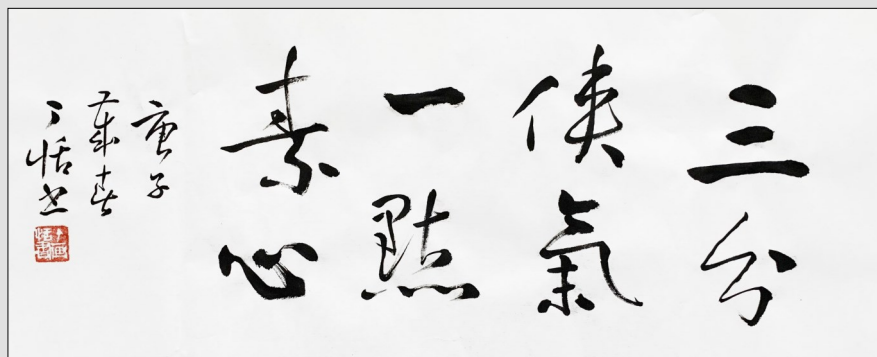 三分
俠氣
一點
素心
庚子
歲春
恬书